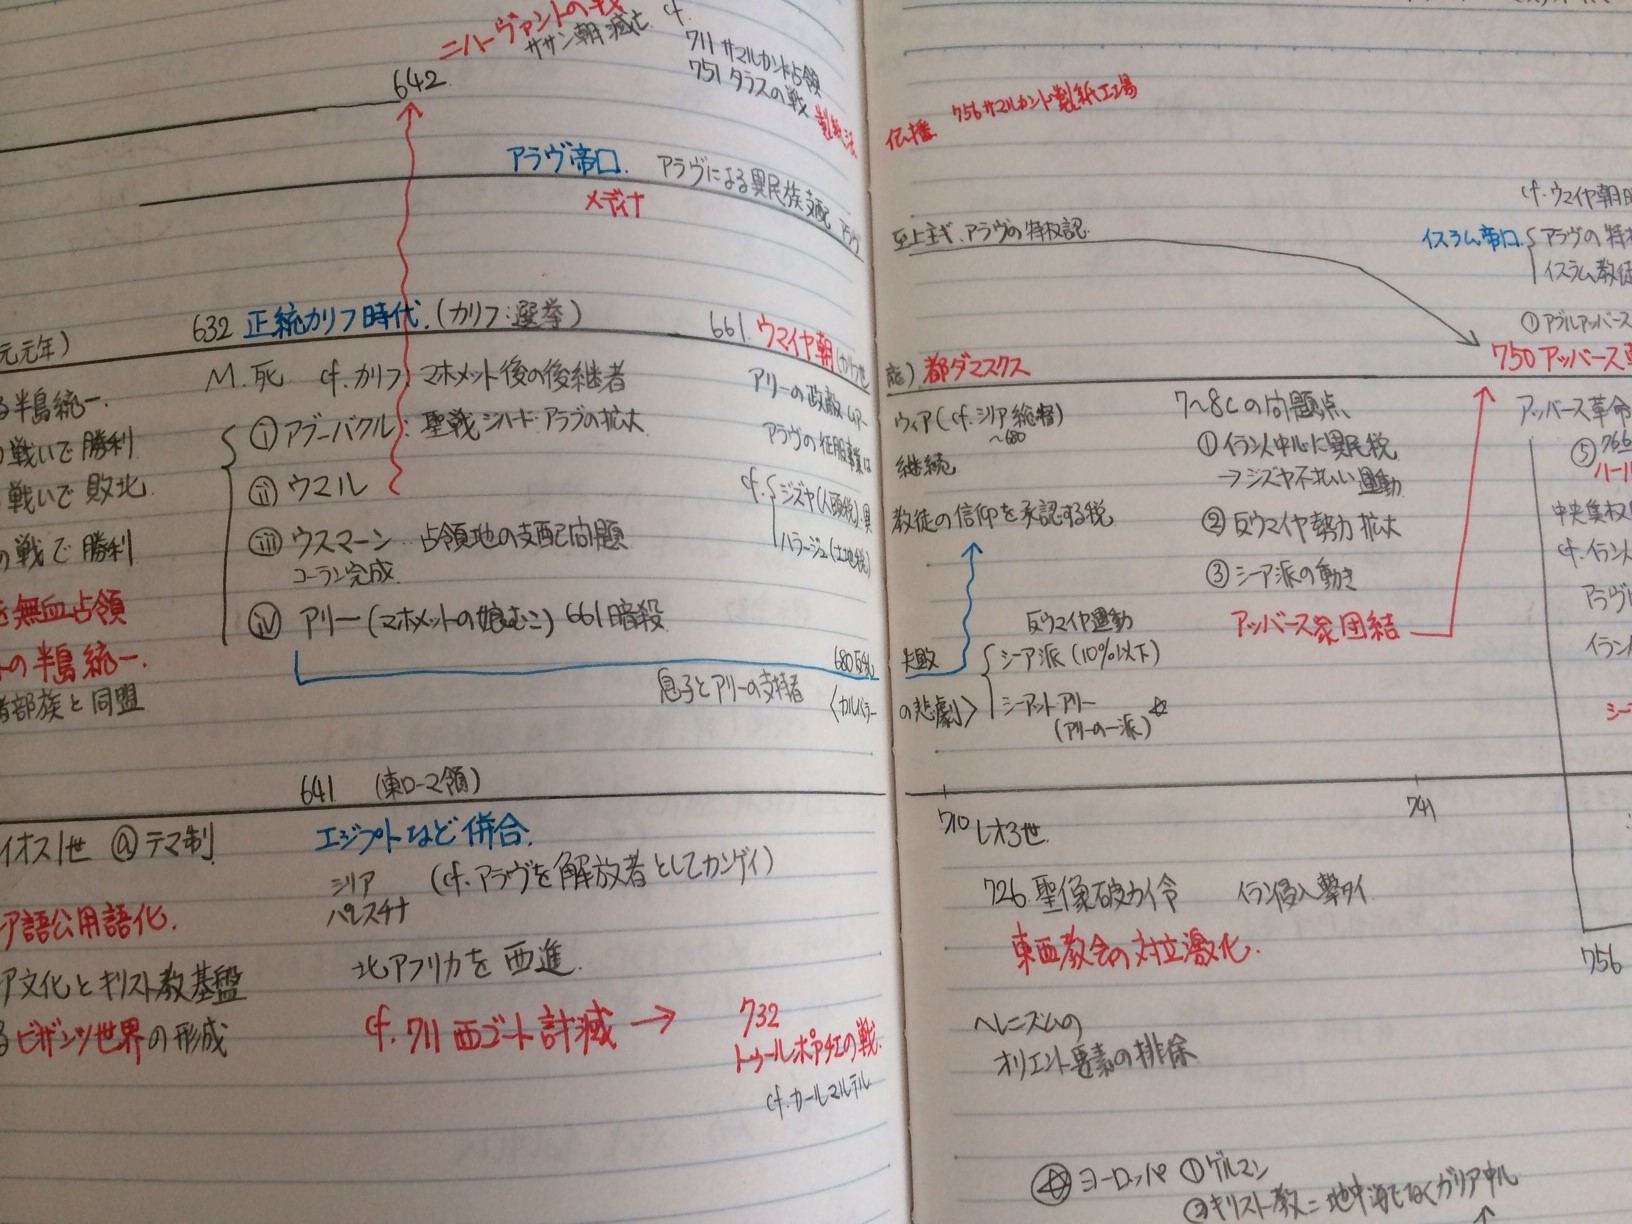 ニハーヴァントの戦
ササン朝滅亡
cf.
711 サマルカンド占領
751 タラスの戦
製紙法
642
アラヴ帝口.
アラヴによる異民族支配 アラヴ
メディナ
元元年)
632 正統カリフ時代.(カリフ:選挙)
661. ウマイヤ朝
M.死 cf.カリフ:マホメット後の後継者
る半島統一.
戦いで勝利
戦いで敗北.
の戦で勝利
無血占領
の半島統一.
部族と同盟
ⅰ アブーバクル:聖戦ジハード・アラブの拡大
ⅱ ウマル
ⅲ ウスマーン 占領地の支配問題
コーラン完成.
ⅳ アリー(マホメットの娘むこ) 661暗殺
アリーの政敵ムアー
アラヴの征服事業は
cf. ジズヤ(人頭税).異
ハラージュ(土地税)
680反乱
息子とアリーの支持者
〈カルバラー
641 (東ローマ領)
イオス1世 @テマ制
エジプトなど併合.
シリア
パレスチナ
(cf.アラヴを解放者としてカンゲイ)
ア語公用語化.
ア文化とキリスト教基盤
るビザンツ世界の形成
北アフリカを西進.
cf. 711 西ゴート討滅 →
732
トゥールポアチエの戦.
cf.カールマルテル
伝播.
756サマルカンド製紙工場
至上主ギ.アラヴの特权認.
cf.ウマイヤ朝
イスラム帝口.
アラヴの特
イスラム教徒
①アブルアッバース
750 アッバース
都ダマスクス
ウィア(cf.シリア総督)
~680
継続
教徒の信仰を承認する税
7~8Cの問題点
①イラン人中心に異民税
→ジズヤ不払い運動
②反ウマイヤ勢力拡大
③シーア派の動き
アッバース家団結
アッバース革命
⑤ 766
ハール
中央集权
cf.イラン人
アラヴ
イラン
シー
反ウマイヤ運動
失敗
シーア派(10%以下)
の悲劇〉
シーアットアリー
(アリーの一派)☆
710 レオ3世.
741
726.聖像破カイ令 イラン侵入撃タイ
東西教会の対立激化.
756
ヘレニズムの
オリエント要素の排除.
☆ヨーロッパ ①ゲルマン
②キリスト教=地中海でなくガリア中心